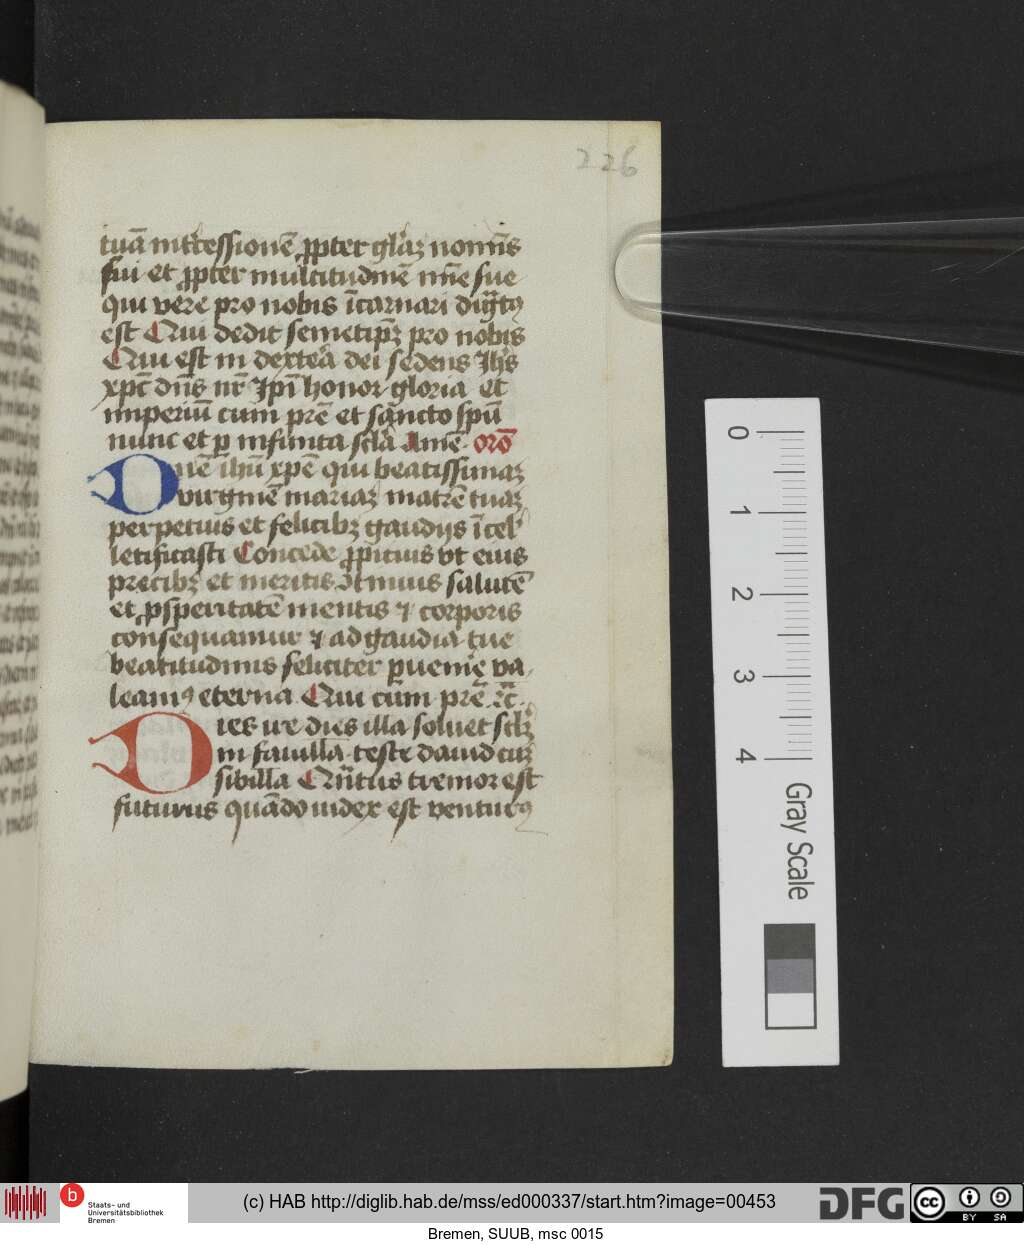 226
tuā int̄cessionē ꝓpter glāz nomīs
sui et ꝓpter multitudinē mīe sue
qui vere pro nobis īcarnari dignatꝰ
est Qui dedit semetipz pro nobis
Qui est in dextera dei sedens Ihs
xpc dn̄s nr̄ Ipī honor gloria et
imperiū cum prē et sancto spū
nunc et ꝑ infinita scla Amē oro
Dnē ihu xpē qui beatissimaz
virginē mariaz matrē tuaz
perpetuis et felicibz gaudijs ī cel
letificasti Concede ꝓpicius vt eius
precibz et meritis ꝯtinuis salutē
et ꝓsperitatē mentis ⁊ corporis
consequamur ⁊ ad gaudia tue
beatitudinis feliciter ꝑuenīe va
leamꝰ eterna Qui cum prē ⁊c̄
Dies ire dies illa soluet sclz
in fauilla teste dauid cuz
sibilla Quntus tremor est
futurus quādo iudex est venturꝰ
0
1
2
3
4
Gray Scale
b
Staats- und
Universitätsbibliothek
Bremen
(c) HAB http://diglib.hab.de/mss/ed000337/start.htm?image=00453
DFG
cc
BY SA
Bremen, SUUB, msc 0015